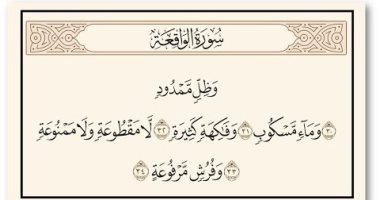 سُورَةُ الوَاقِعَةِ
وَظِلٍّ مَّمْدُودٍ
٣٠ وَمَآءٍ مَّسْكُوبٍ ٣١ وَفَٰكِهَةٍ كَثِيرَةٍ ٣٢ لَّا مَقْطُوعَةٍ وَلَا مَمْنُوعَةٍ
٣٣ وَفُرُشٍ مَّرْفُوعَةٍ ٣٤